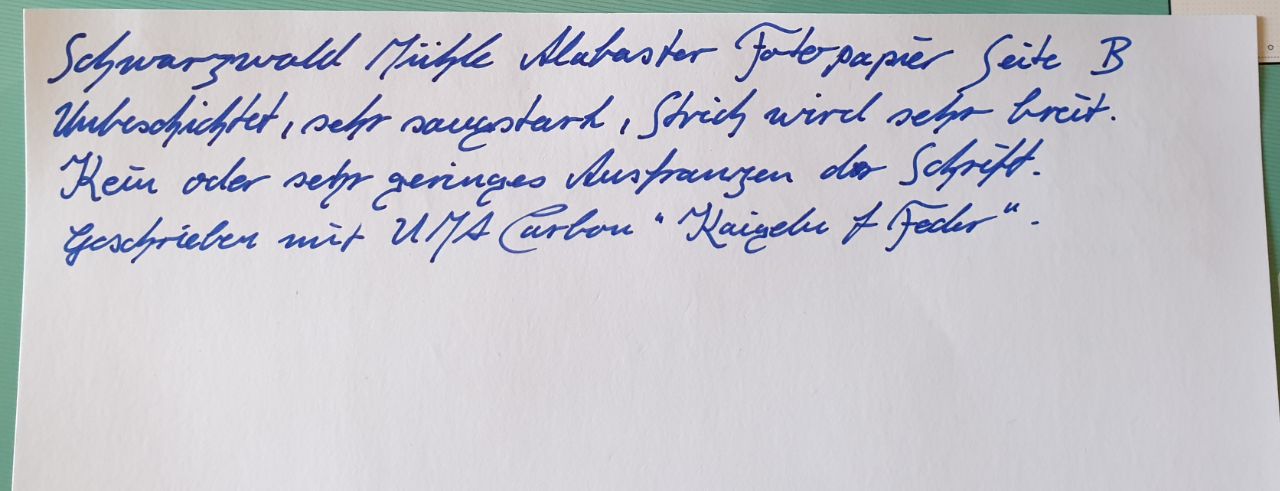 Schwarzwald Mühle Alabaster Fotopapier Seite B
Unbeschichtet, sehr saugstark, Strich wird sehr breit.
Kein oder sehr geringes Ausfranzen der Schrift.
Geschrieben mit UMA Carbon "Kaigelu f Feder".